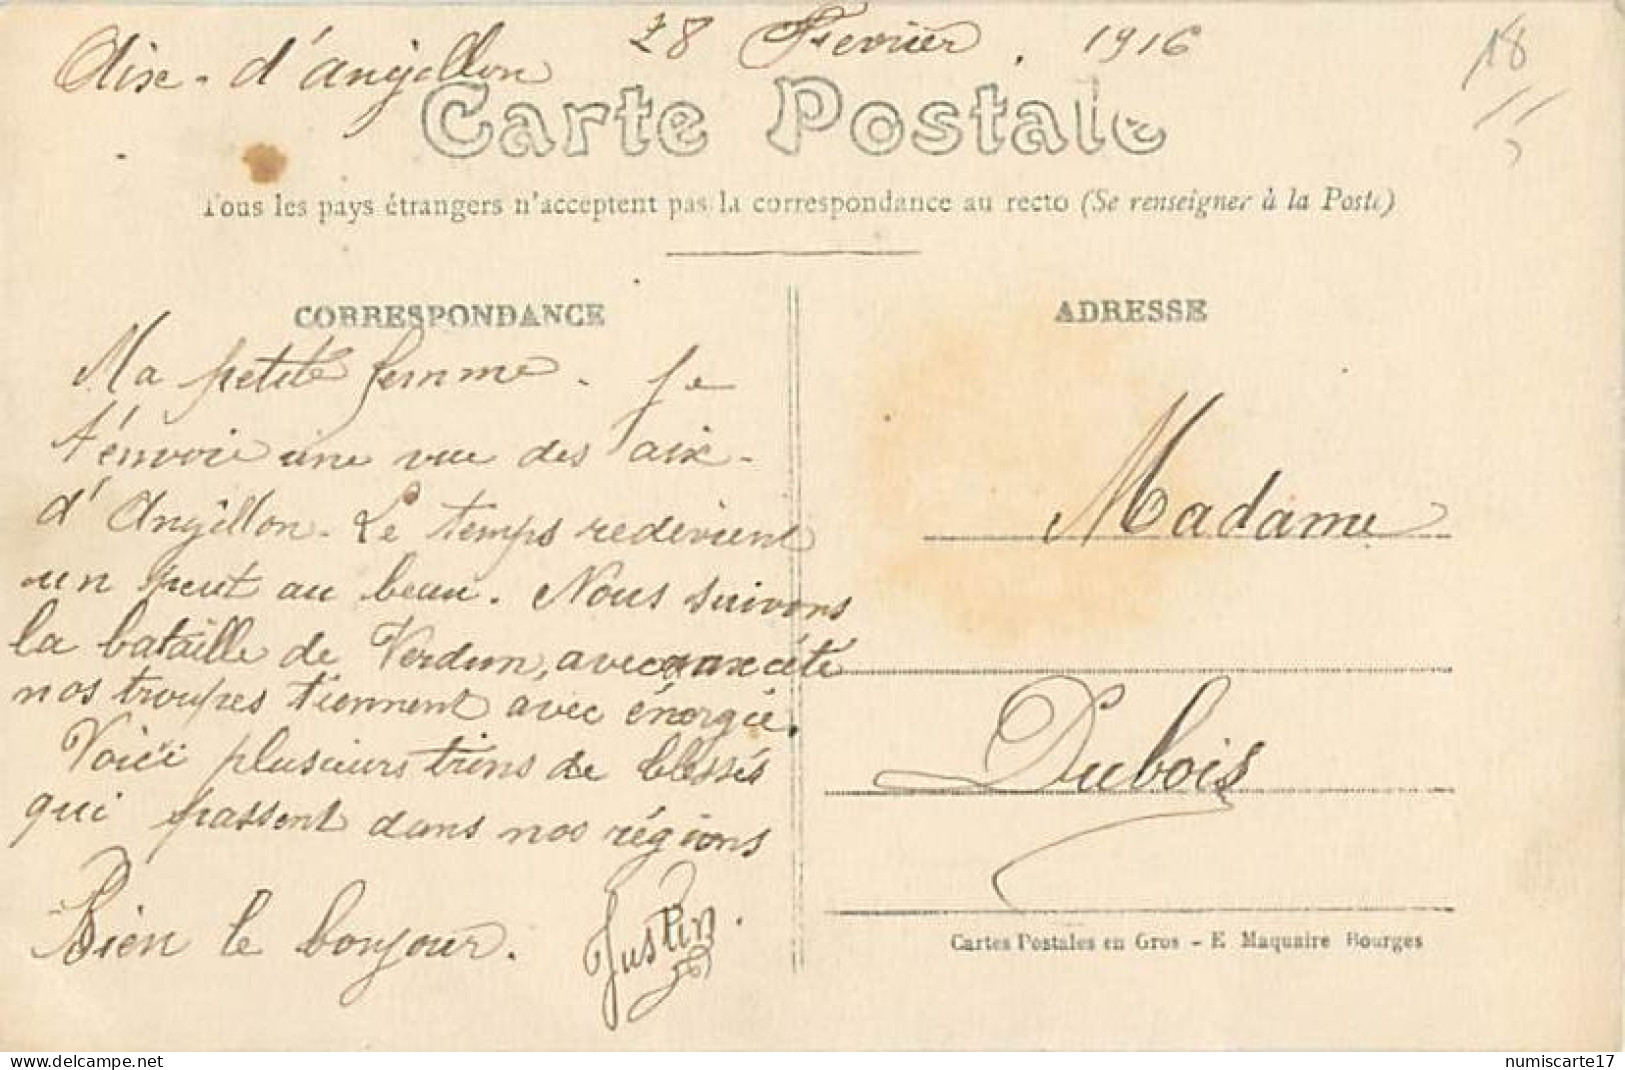 Aix-d'angillon 28 Fevrier. 1916
18
Carte Postale
Tous les pays étrangers n'acceptent pas la correspondance au recto (Se renseigner à la Poste)
CORRESPONDANCE
ADRESSE
Ma petite femme. Je
t'envoie une vue des aix-
d'Angillon. Le temps redevient
un peut au beau. Nous suivons
la bataille de Verdun, avec anxcété
nos troupes tiennent avec énergie.
Voici plusieurs trins de blessés
qui passent dans nos régions
Bien le bonjour. Justin.
Madame
Dubois
Cartes Postales en Gros - E. Maquaire Bourges
delcampe.net
numiscarte17